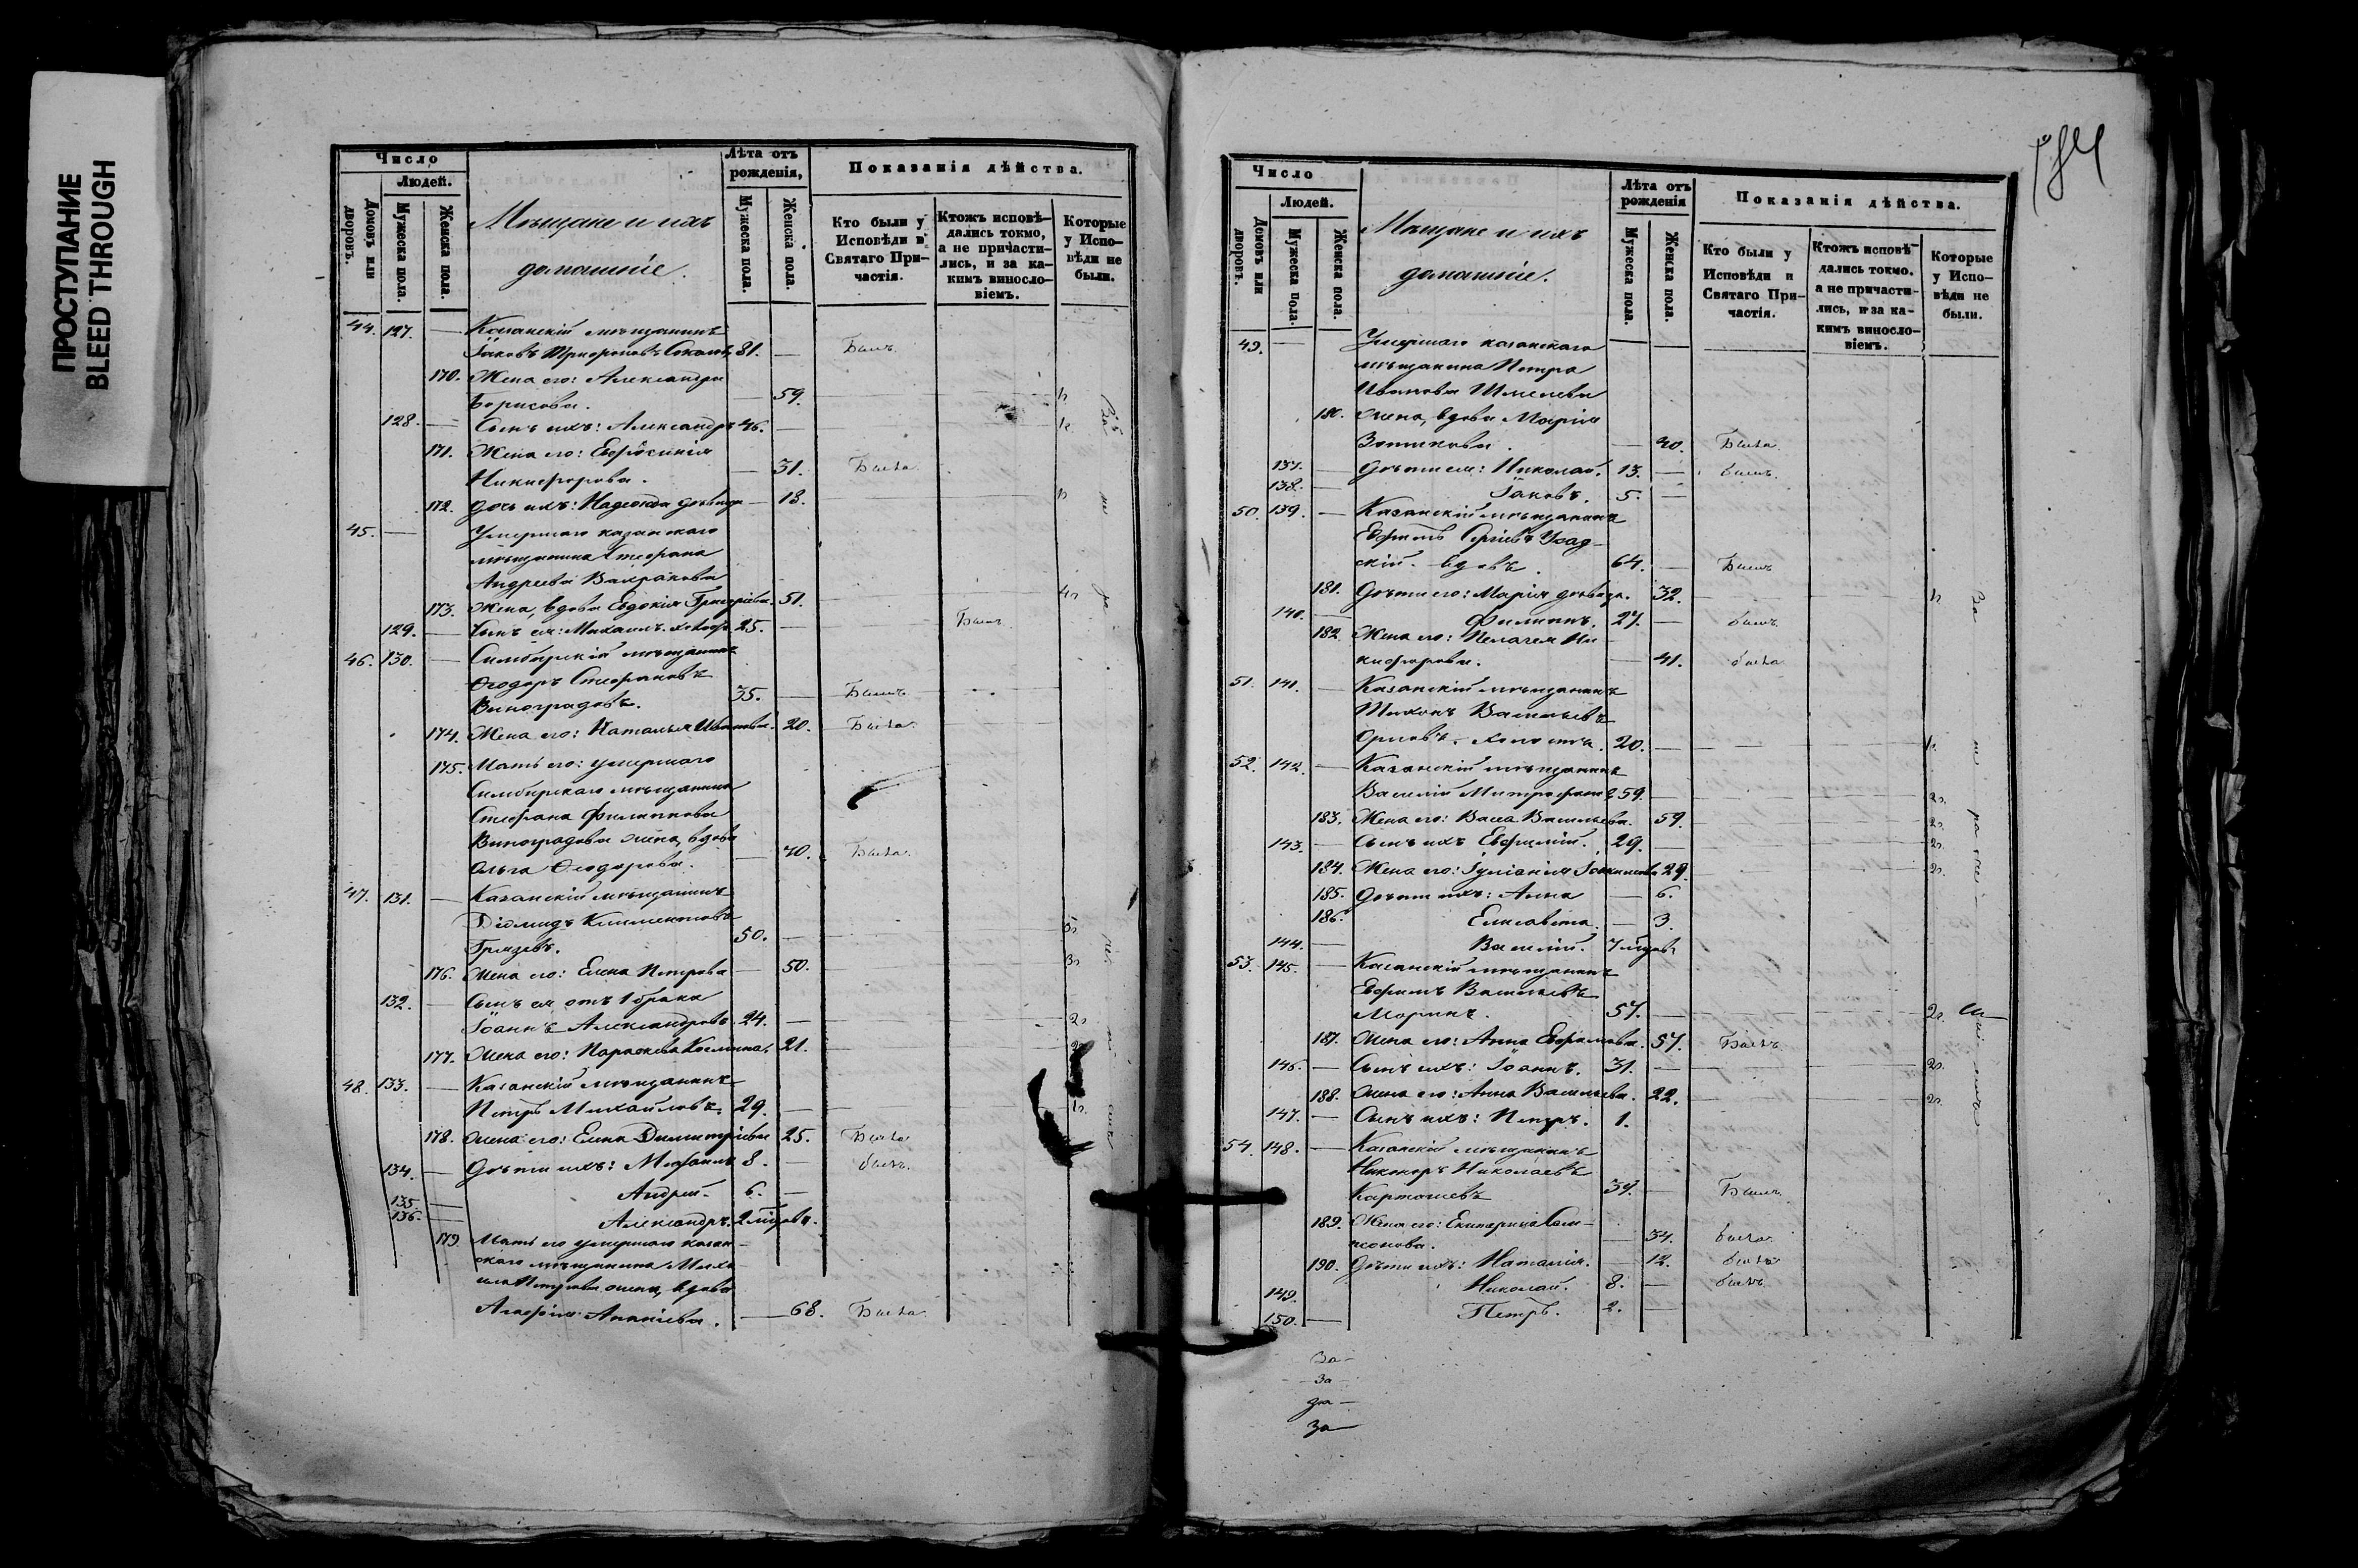 ПРОСТУПАНИЕ
BLEED THROUGH
Число
Людей.
Домовъ или дворовъ.
Мужеска пола.
Женска пола.
Мѣщане и ихъ
домашніе.
Лѣта отъ рожденія,
Мужеска пола.
Женска пола.
Показанія дѣйства.
Кто были у Исповѣди и Святаго Причастія.
Ктожъ исповѣдались токмо, а не причастились, и за какимъ винословіемъ.
Которые у Исповѣди не были.
44. 127. — Казанскій мѣщанинъ
Іаковъ Трифоновъ 81. — Былъ
170. Жена его: Александра
Борисова. — 59.
128. — Сынъ ихъ: Александръ 46. —
171. Жена его: Евфросинія
Никифорова. — 31. Была
172. Дочь ихъ: Надежда дѣвица — 18.
45. — Умершаго казанскаго
мѣщанина Стефана
Андреева
173. Жена, вдова Евдокія Григорьева. 51.
129. — Сынъ ея: Михаилъ 25. — Былъ
46. 130. — Симбирскій мѣщанинъ
Ѳеодоръ Стефановъ
Виноградовъ. 35. — Былъ
174. Жена его: Наталья Иванова. 20. Была
175. Мать его: умершаго
Симбирскаго мѣщанина
Стефана Филиппова
Виноградова жена, вдова
Ольга Ѳеодорова. — 70. Была
47. 131. — Казанскій мѣщанинъ
Діомидъ Климентовъ
Грязевъ. 50. —
176. Жена его: Елена Петрова — 50.
132. — Сынъ ея отъ 1 брака
Іоаннъ Александровъ. 24. — 2
177. Жена его: Параскева Космина. 21.
48. 133. — Казанскій мѣщанинъ
Петръ Михайловъ. 29. —
178. Жена его: Елена Димитріева 25. Была
134. — Дѣти ихъ: 8. — былъ
135. — Андрей. 6. —
136. — Александръ.
179. Мать его умершаго казан-
скаго мѣщанина Миха-
ила Петрова жена, вдова
Агафія Ананіева. — 68. Была
Число
Людей.
Домовъ или дворовъ.
Мужеска пола.
Женска пола.
Мѣщане и ихъ
домашніе.
Лѣта отъ рожденія
Мужеска пола.
Женска пола.
Показанія дѣйства.
Кто были у Исповѣди и Святаго Причастія.
Ктожъ исповѣдались токмо. а не причастились, и за какимъ винословіемъ.
Которые у Исповѣди не были.
49. — Умершаго казанскаго
мѣщанина Петра
Иванова Шмелева
180. жена, вдова Марія
Зотикова. — 40. Была
137. — Дѣти ея: Николай. 13. — былъ
138. — Іаковъ. 5. —
50. 139. — Казанскій мѣщанинъ
Ефимъ Сергіевъ Усад-
скій вдовъ. 64. — Былъ
181. Дѣти его: Марія дѣвица. 32.
140. — Филиппъ. 27. — былъ
182. Жена его: Пелагея Ни-
кифорова. — 41. была
51. 141. — Казанскій мѣщанинъ
Тихонъ Васильевъ
Орловъ. холостъ. 20. —
52. 142. — Казанскій мѣщанинъ
Василій Митрофан 59. — 2
183. Жена его: Васса Васильева. 59. 2
143. — Сынъ ихъ Евфимій. 29. — 2
184. Жена его: Іуліанія 29. 2
185. Дѣти ихъ: Анна — 6.
186. Елисавета. — 3.
144. — Василій.
53. 145. — Казанскій мѣщанинъ
Ефимъ Васильевъ
57. — 2
187. Жена его: Анна Ефремова. 57.
146. — Сынъ ихъ: Іоаннъ. 31. — 2
188. Жена его: Анна Васильева. 22. 2
147. — Сынъ ихъ: Петръ. 1.
54. 148. — Казанскій мѣщанинъ
Никоноръ Николаевъ
Карташевъ 34. — Былъ
189. Жена его: Екатерина Сам-
псонова. — 34. была
190. Дѣти ихъ: Наталія. — 12. была
149. Николай. 8. — былъ
150. — Петръ. 2. —
За —
За
за —
За —